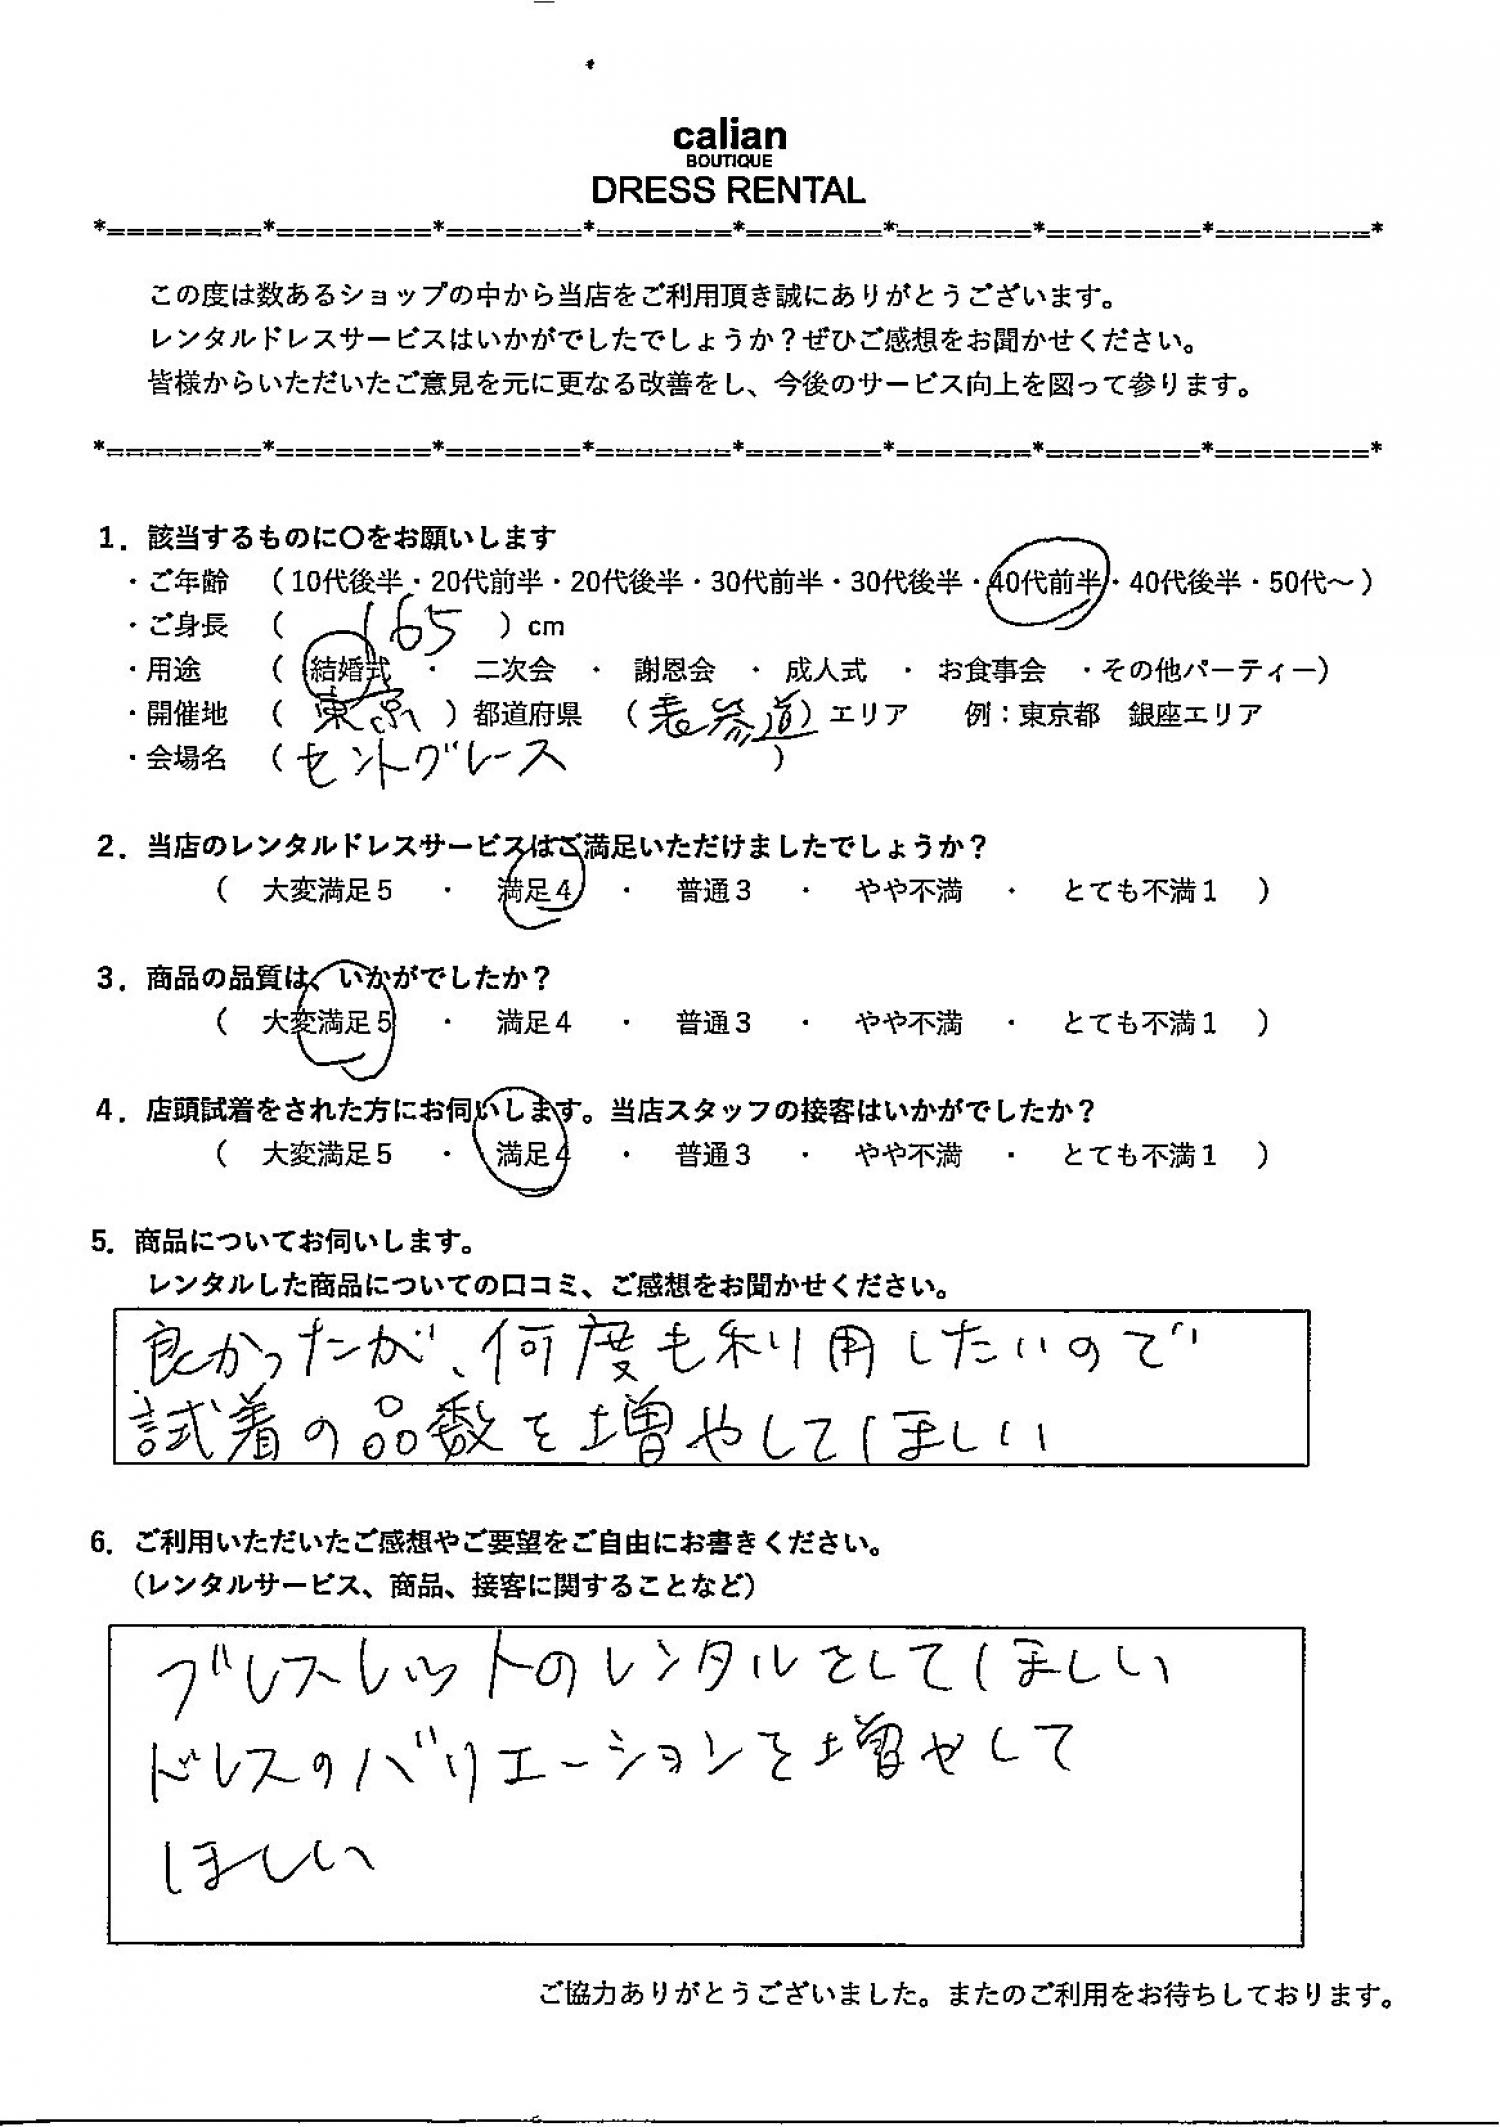 calian
BOUTIQUE
DRESS RENTAL
*========*========*=======*=======*=======*=======*========*========*
この度は数あるショップの中から当店をご利用頂き誠にありがとうございます。
レンタルドレスサービスはいかがでしたでしょうか？ぜひご感想をお聞かせください。
皆様からいただいたご意見を元に更なる改善をし、今後のサービス向上を図って参ります。
*========*========*=======*=======*=======*=======*========*========*
1．該当するものに〇をお願いします
・ご年齢 （10代後半・20代前半・20代後半・30代前半・30代後半・40代前半・40代後半・50代～）
・ご身長 （ 165 ）cm
・用途 （ 結婚式 ・ 二次会 ・ 謝恩会 ・ 成人式 ・ お食事会 ・その他パーティー）
・開催地 （ 東京 ）都道府県 （表参道）エリア 例：東京都 銀座エリア
・会場名 （ セントグレース ）
2．当店のレンタルドレスサービスはご満足いただけましたでしょうか？
（ 大変満足5 ・ 満足4 ・ 普通3 ・ やや不満 ・ とても不満1 ）
3．商品の品質は、いかがでしたか？
（ 大変満足5 ・ 満足4 ・ 普通3 ・ やや不満 ・ とても不満1 ）
4．店頭試着をされた方にお伺いします。当店スタッフの接客はいかがでしたか？
（ 大変満足5 ・ 満足4 ・ 普通3 ・ やや不満 ・ とても不満1 ）
5．商品についてお伺いします。
レンタルした商品についての口コミ、ご感想をお聞かせください。
良かったが、何度も利用したいので
試着の品数を増やしてほしい
6．ご利用いただいたご感想やご要望をご自由にお書きください。
（レンタルサービス、商品、接客に関することなど）
ブレスレットのレンタルをしてほしい
ドレスのバリエーションを増やして
ほしい
ご協力ありがとうございました。またのご利用をお待ちしております。